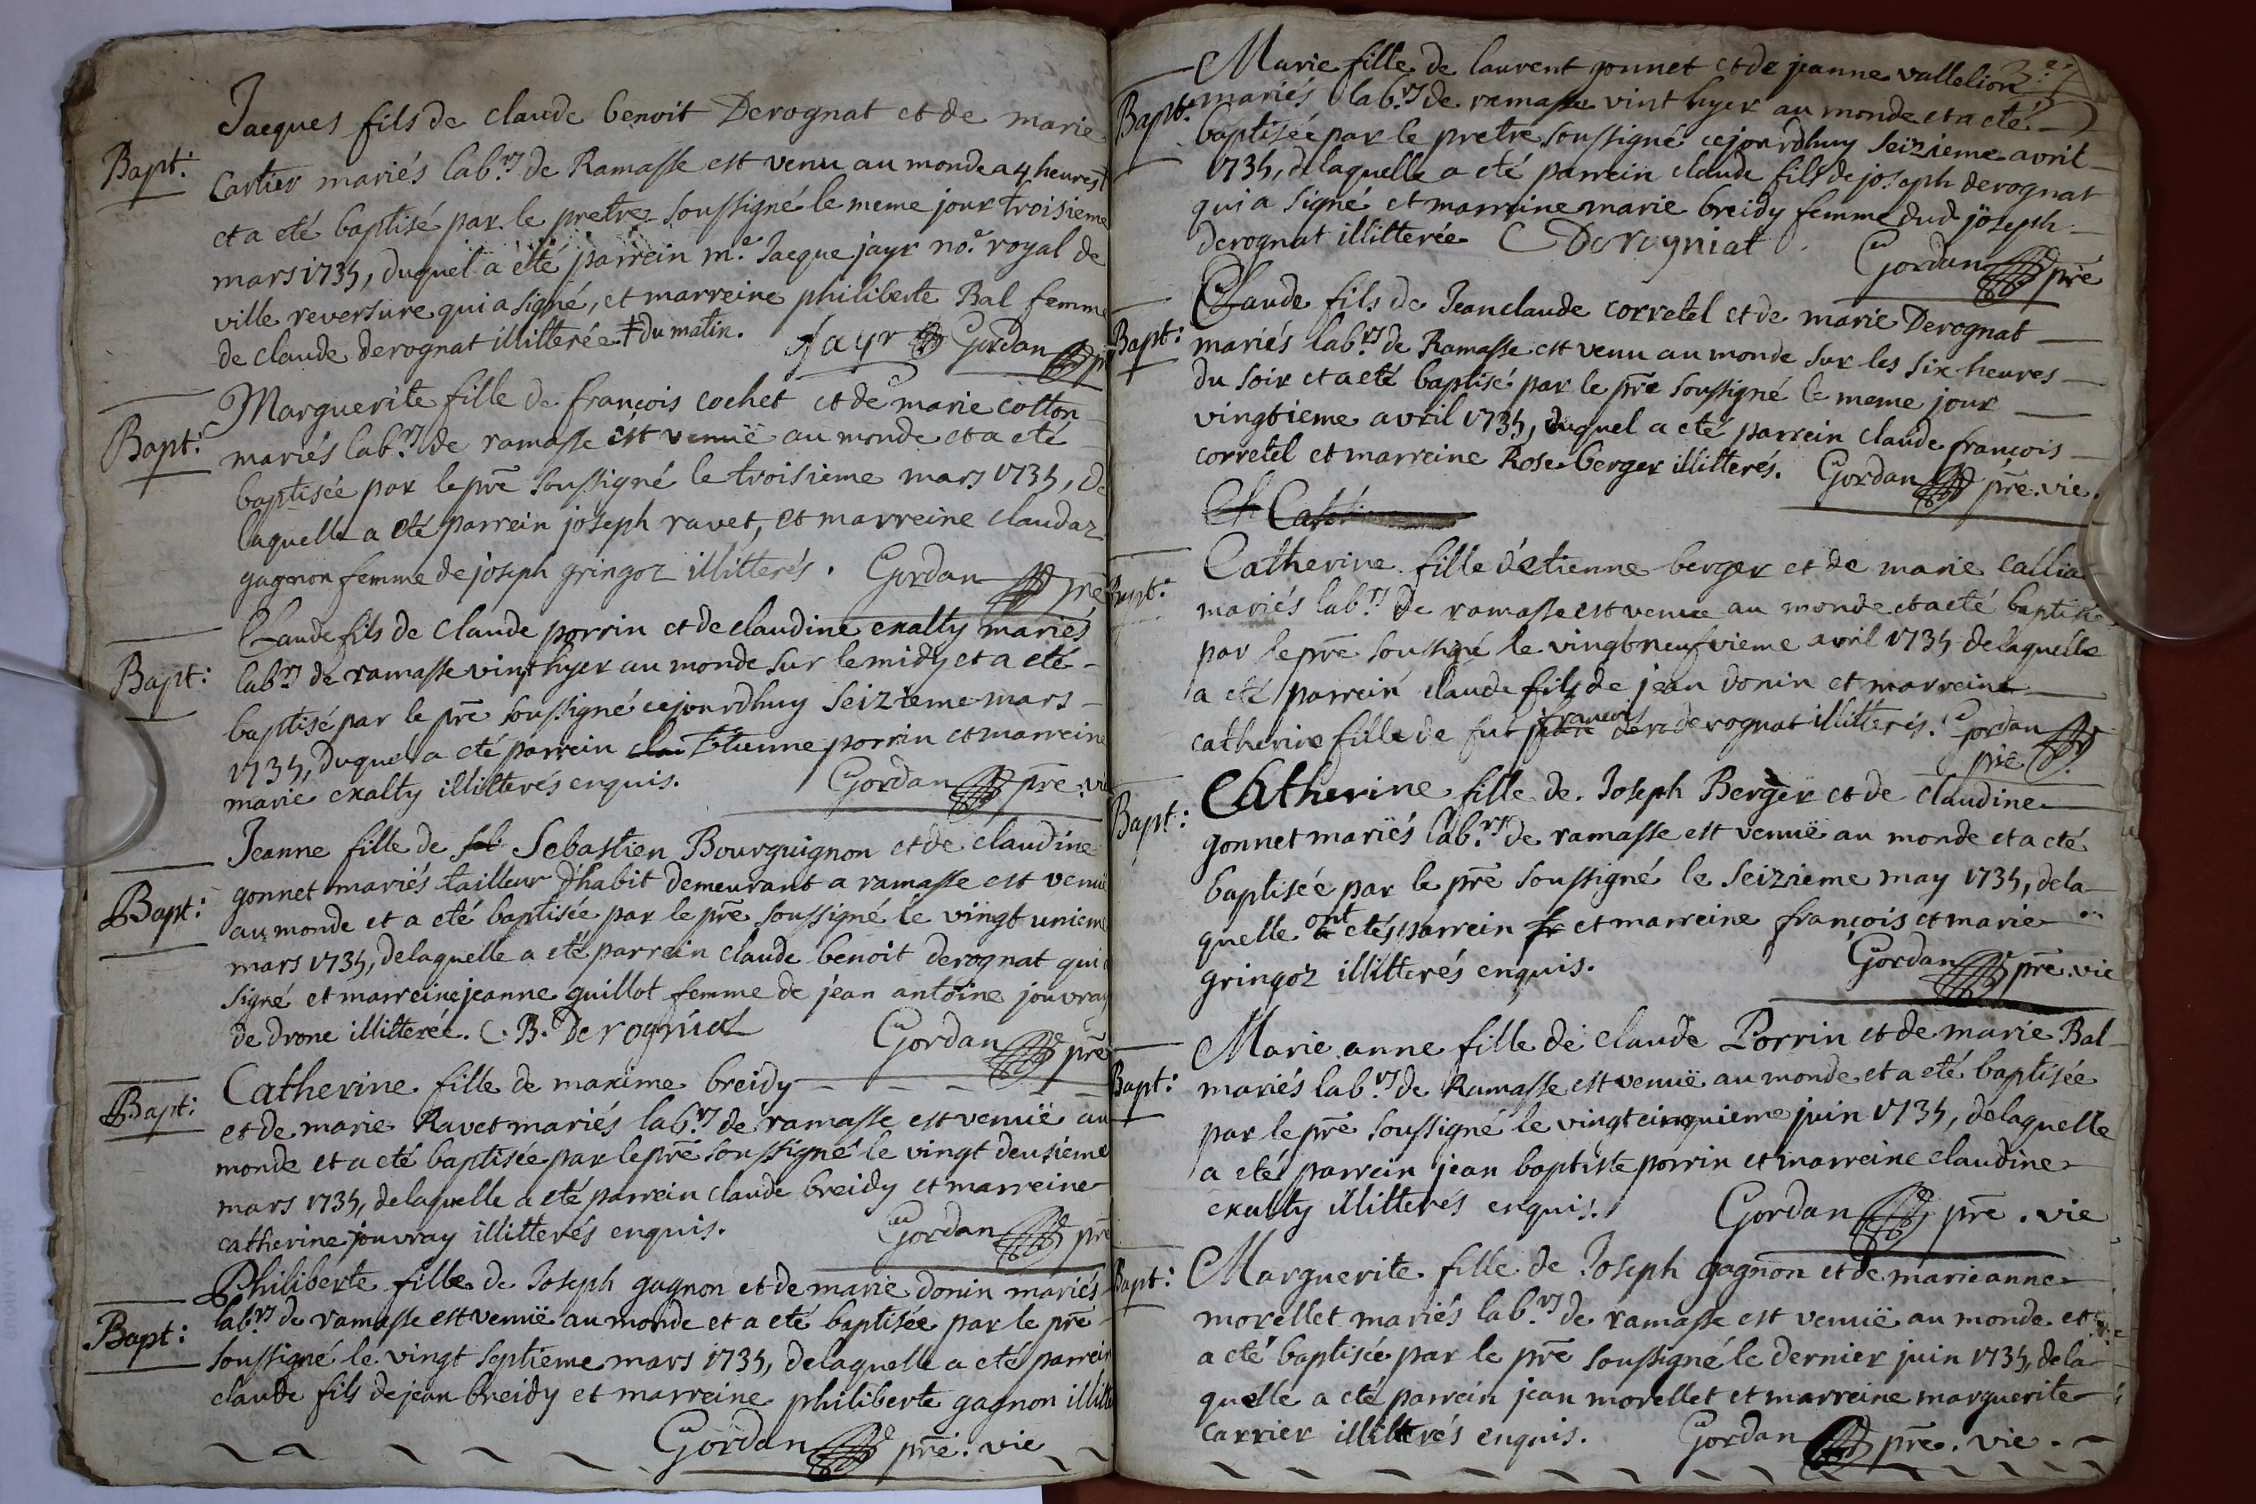 Jacques fils de claude benoit Derognat et de marie
Bapt:
Cartier mariés lab.rs de Ramasse est venu au monde a 4 heures‡
et a eté baptisé par le pretre soussigné le meme jour troisieme
mars 1735, duquel a eté parrein m.e Jacque jayr no.e royal de
ville reversure qui a signé, et marreine philiberte Bal femme
de claude derognat illiterée ‡du matin. Jayr Gordan
Marguerite fille de françois cochet et de marie cotton
Bapt:
mariés lab.rs de ramasse est venuë au monde et a eté
baptisée par le prē soussigné le troisieme mars 1735, de
laquelle a eté parrein joseph ravet, et marreine claudaz
gagnon femme de joseph gringoz illitterés. Gordan prē
Claude fils de claude porrin et de claudine exalty mariés
Bapt:
lab.rs de ramasse vint hyer au monde sur le midy et a eté
baptisé par le prē soussigné cejourdhuy seizieme mars
1735, duquel a eté parrein Etienne porrin et marreine
marie exalty illitterés enquis. Gordan prē. vie
Jeanne fille de Sebastien Bourguignon et de claudine
Bapt:
gonnet mariés tailleur d'habit demeurant a ramasse est venuë
au monde et a eté baptisée par le prē soussigné le vingt unieme
mars 1735, delaquelle a eté parrein claude benoit derognat qui a
signé et marreine jeanne guillot femme de jean antoine jouvray
de drone illiterée. C. B. Derogniat Gordan prē
Catherine fille de maxime breidy
Bapt:
et de marie Ravet mariés lab.rs de ramasse est venuë au
monde et a eté baptisée par le prē soussigné le vingt deusieme
mars 1735, delaquelle a eté parrein claude breidy et marreine
catherine jouvray illitterés enquis. Gordan prē
Philiberte fille de Joseph gagnon et de marie donin mariés
Bapt:
lab.rs de ramasse est venuë au monde et a eté baptisée par le prē
soussigné le vingt septieme mars 1735, delaquelle a eté parrein
claude fils de jean breidy et marreine philiberte gagnon illitte
Gordan prē. vie
Marie fille de laurent gonnet et de jeanne vallelion
Bapt:
mariés lab.rs de ramasse vint hyer au monde et a eté
baptisée par le pretre soussigné cejourdhuy seizieme avril
1735, delaquelle a eté parrein claude fils de joseph derognat
qui a signé et marreine marie breidy femme dud. joseph
derognat illitterée C Derogniat Gordan prē
Claude fils de Jeanclaude corretel et de marie Derognat
Bapt:
mariés lab.rs de Ramasse est venu au monde sur les six heures
du soir et a eté baptisé par le prē soussigné le meme jour
vingtieme avril 1735, duquel a eté parrein claude françois
corretel et marreine Rose berger illitterés. Gordan prē. vie.
Catherine fille d'etienne berger et de marie callia
Bapt:
mariés lab.rs de ramasse est venue au monde et a eté baptisée
par le prē soussigné le vingt neufvieme avril 1735 delaquelle
a eté parrein claude fils de jean donin et marreine
catherine fille de fut françois derognat illitterés. Gordan
prē
Catherine fille de Joseph Berger et de claudine
Bapt:
gonnet mariés lab.rs de ramasse est venuë au monde et a eté
baptisée par le prē soussigné le seizieme may 1735, dela-
quelle ont etés parrein et marreine françois et marie
gringoz illitterés enquis. Gordan prē. vie
Marie anne fille de claude Porrin et de marie Bal
Bapt:
mariés lab.rs de Ramasse est venuë au monde et a eté baptisée
par le prē soussigné le vingt cinquieme juin 1735, delaquelle
a eté parrein jean baptiste porrin et marreine claudine
exalty illitterés enquis. Gordan prē. vie
Marguerite fille de Joseph gagnon et de marie anne
Bapt:
morellet mariés lab.rs de ramasse est venuë au monde et
a eté baptisée par le prē soussigné le dernier juin 1735, dela-
quelle a eté parrein jean morellet et marreine marguerite
carrier illitterés enquis. Gordan prē. vie.